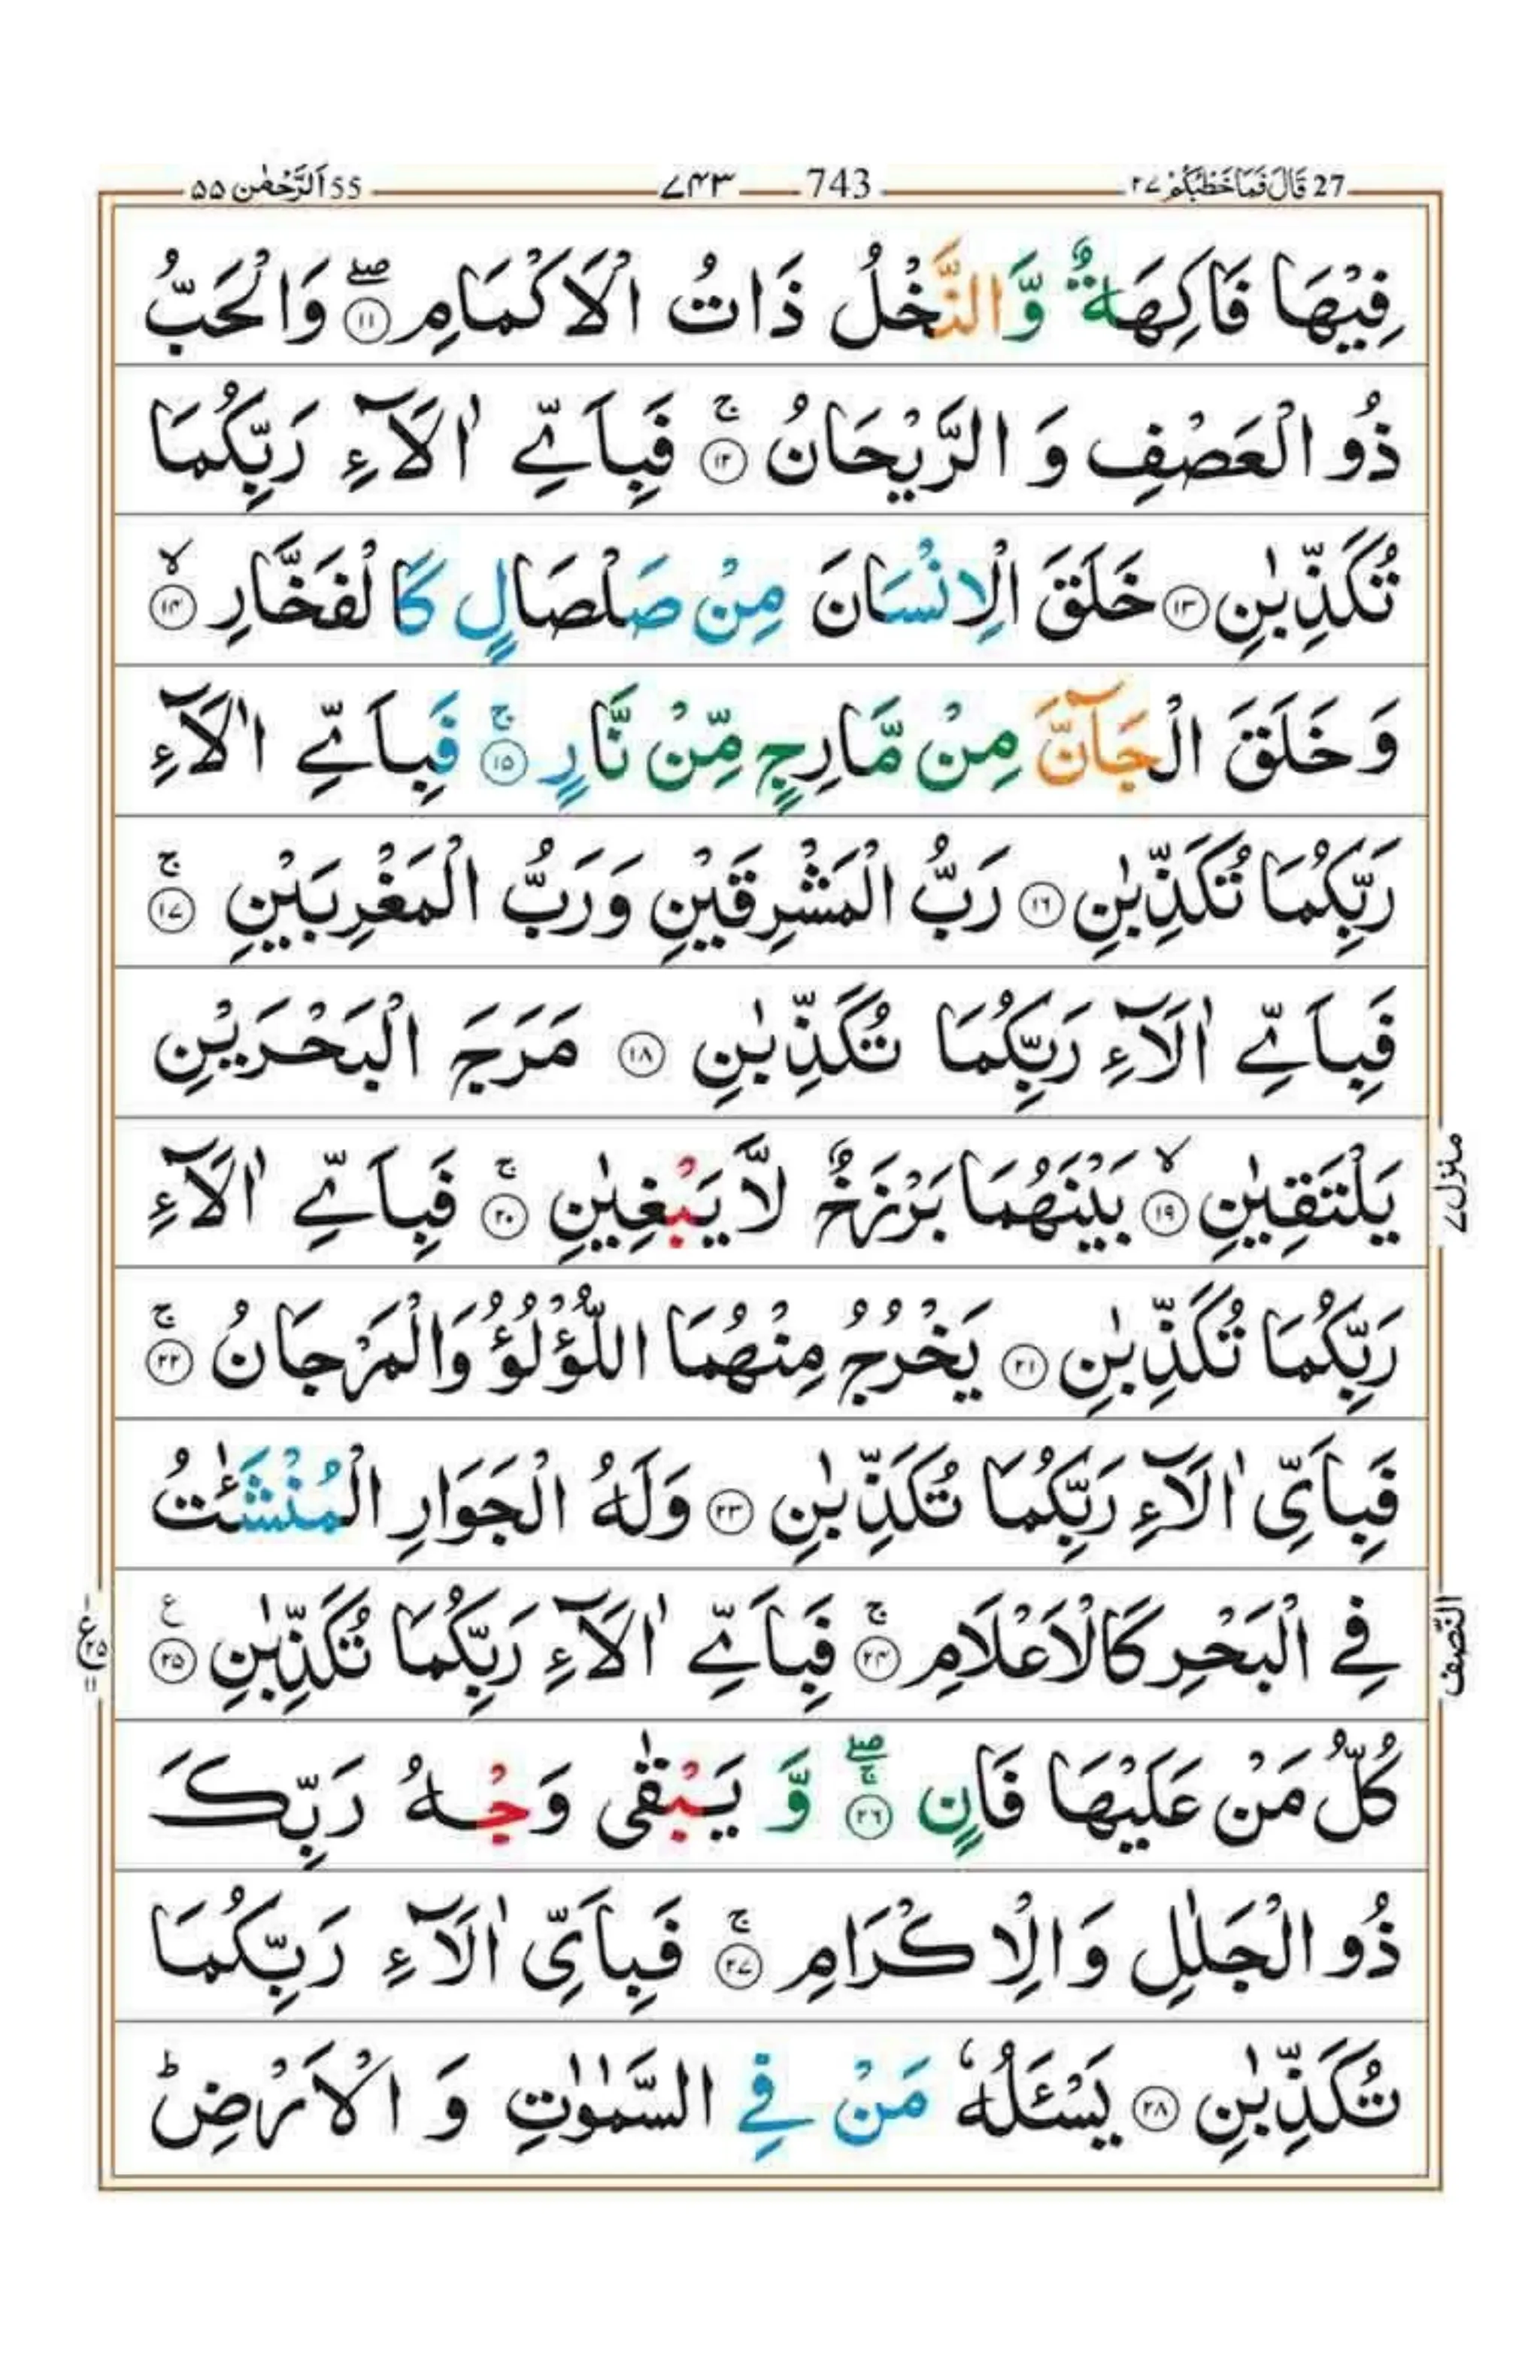 27 قَالَ فَمَا خَطْبُكُمْ ۲۷
743 ۷۴۳
55 اَلرَّحْمٰن ۵۵
فِيْهَا فَاكِهَةٌ وَّالنَّخْلُ ذَاتُ الْاَكْمَامِ ۖ ۱۱ وَالْحَبُّ
ذُو الْعَصْفِ وَ الرَّيْحَانُ ۚ ۱۲ فَبِاَيِّ اٰلَآءِ رَبِّكُمَا
تُكَذِّبٰنِ ۱۳ خَلَقَ الْاِنْسَانَ مِنْ صَلْصَالٍ كَالْفَخَّارِ ۙ ۱۴
وَ خَلَقَ الْجَآنَّ مِنْ مَّارِجٍ مِّنْ نَّارٍ ۚ ۱۵ فَبِاَيِّ اٰلَآءِ
رَبِّكُمَا تُكَذِّبٰنِ ۱۶ رَبُّ الْمَشْرِقَيْنِ وَرَبُّ الْمَغْرِبَيْنِ ۚ ۱۷
فَبِاَيِّ اٰلَآءِ رَبِّكُمَا تُكَذِّبٰنِ ۱۸ مَرَجَ الْبَحْرَيْنِ
يَلْتَقِيٰنِ ۙ ۱۹ بَيْنَهُمَا بَرْزَخٌ لَّا يَبْغِيٰنِ ۚ ۲۰ فَبِاَيِّ اٰلَآءِ
رَبِّكُمَا تُكَذِّبٰنِ ۲۱ يَخْرُجُ مِنْهُمَا اللُّؤْلُؤُ وَالْمَرْجَانُ ۚ ۲۲
فَبِاَيِّ اٰلَآءِ رَبِّكُمَا تُكَذِّبٰنِ ۲۳ وَلَهُ الْجَوَارِ الْمُنْشَـٰٔتُ
فِي الْبَحْرِ كَالْاَعْلَامِ ۚ ۲۴ فَبِاَيِّ اٰلَآءِ رَبِّكُمَا تُكَذِّبٰنِ ۲۵ ع
كُلُّ مَنْ عَلَيْهَا فَانٍ ۖ ۲۶ وَّ يَبْقٰى وَجْهُ رَبِّكَ
ذُو الْجَلٰلِ وَالْاِكْرَامِ ۚ ۲۷ فَبِاَيِّ اٰلَآءِ رَبِّكُمَا
تُكَذِّبٰنِ ۲۸ يَسْـَٔلُهٗ مَنْ فِي السَّمٰوٰتِ وَ الْاَرْضِ ؕ
منزل ۷
النّصف
۱ ع ۲۵ ۱۱